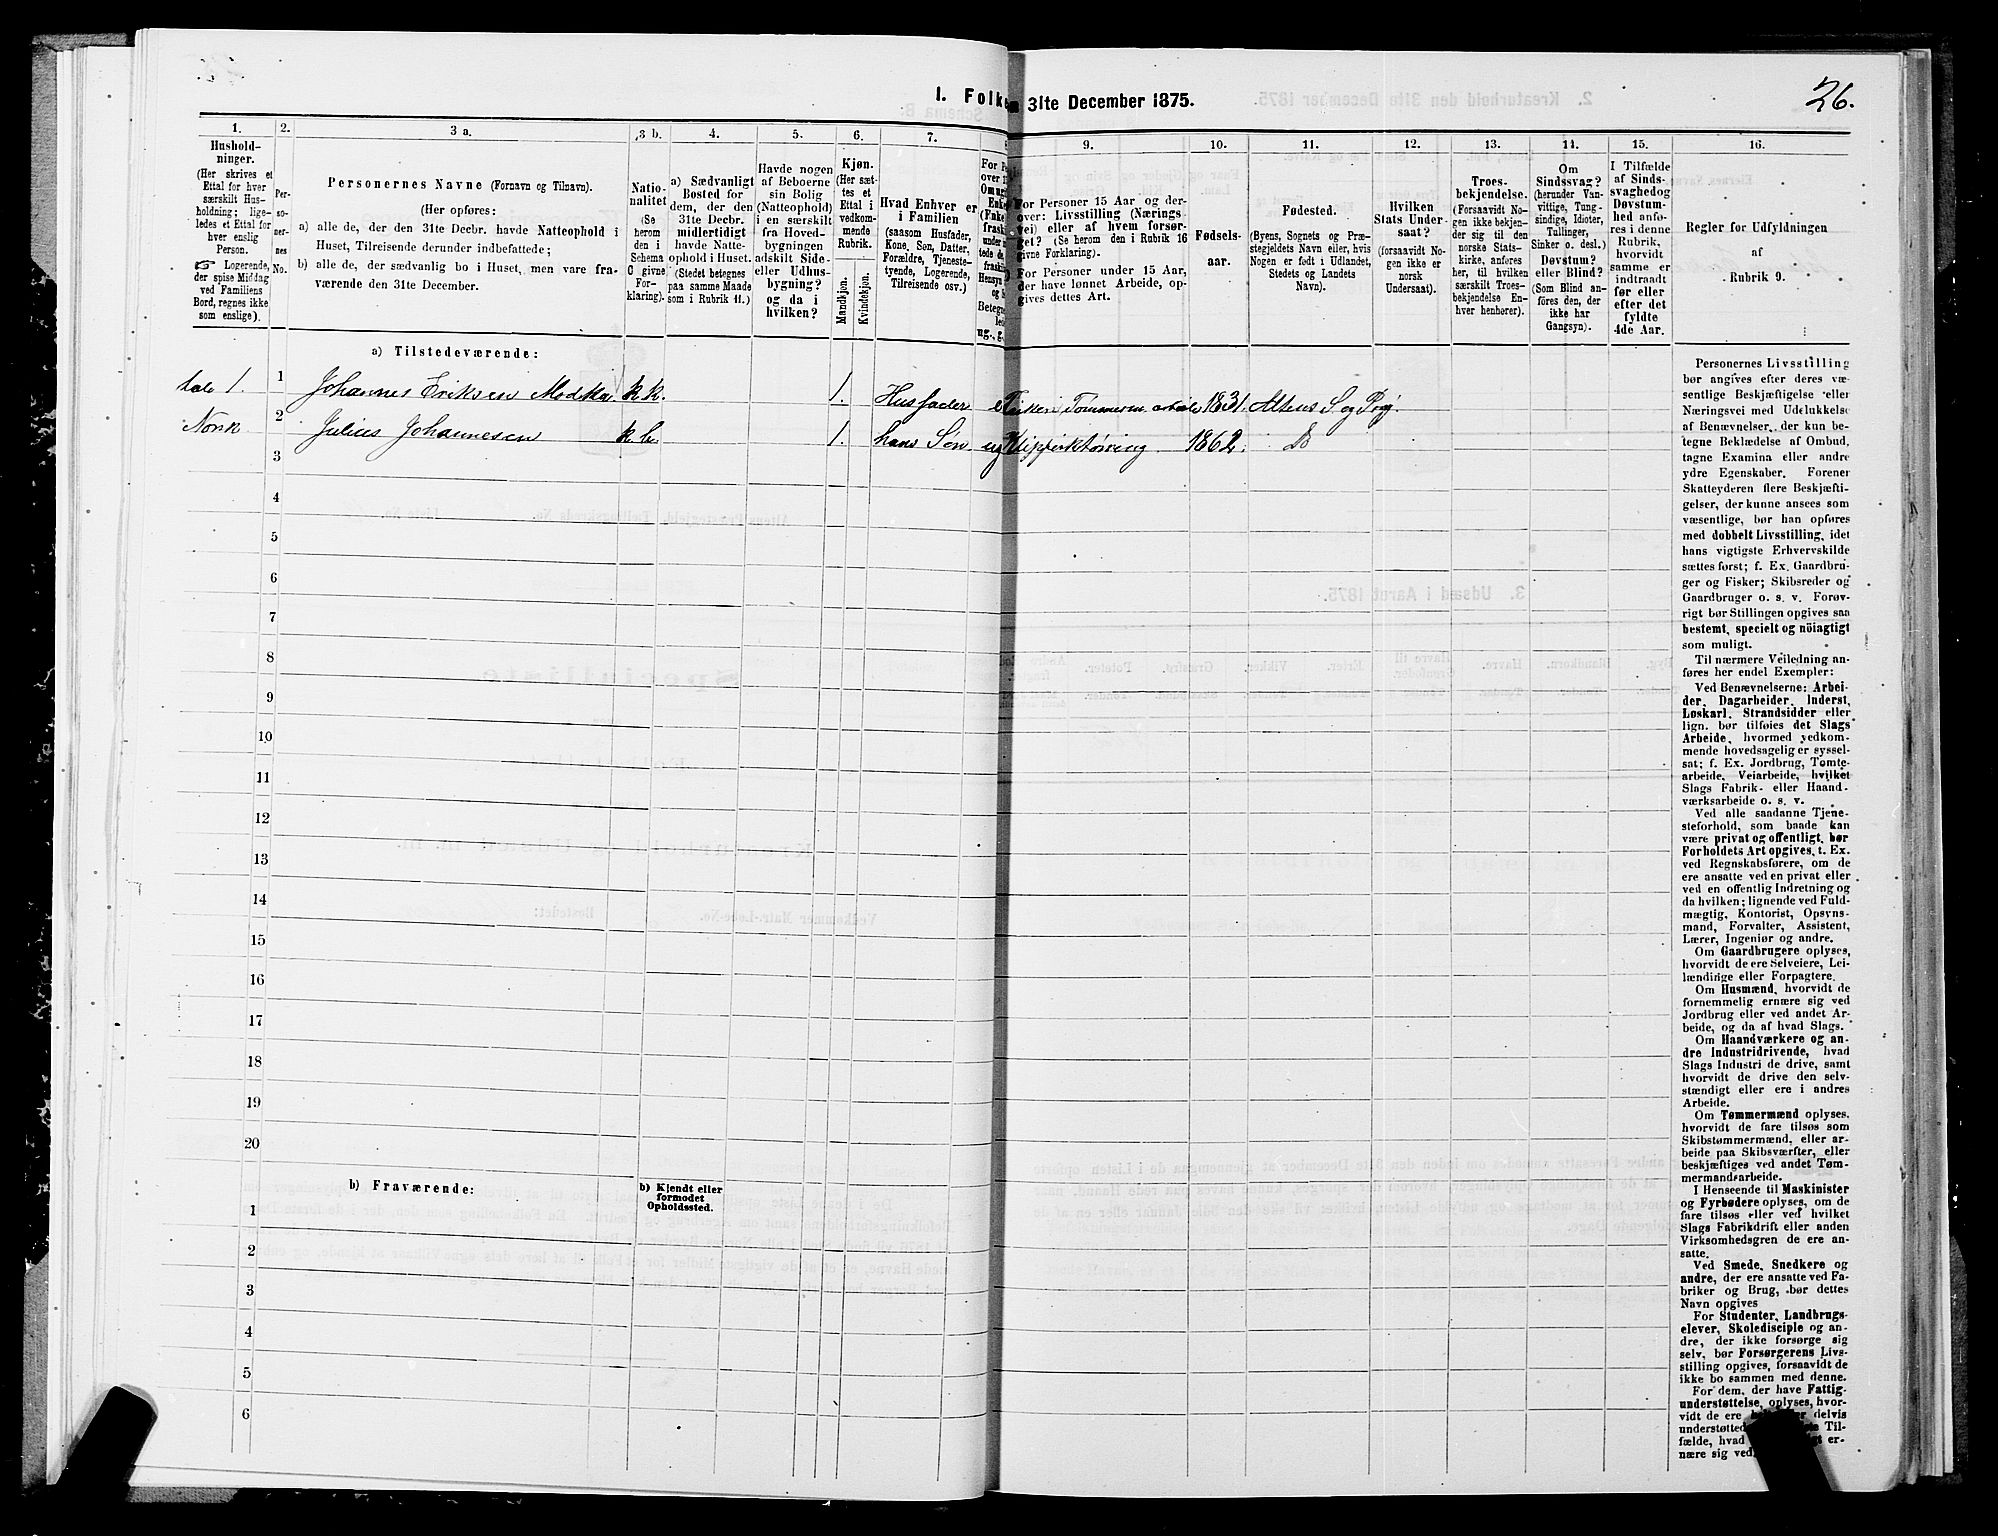 26.
I. Folke
31te December 1875.
1.
2.
3 a.
3 b.
4.
5.
6.
7.
8
9.
10.
11.
12.
13.
14.
15.
16.
Hushold-
ninger.
(Her skrives et
Ettal for hver
særskilt Hus-
holdning; lige-
ledes et Ettal for
hver enslig
Person.
☞ Logerende,
der spise Middag
ved Familiens
Bord, regnes ikke
som enslige).
Per-
so-
ner-
nes
No.
Personernes Navne (Fornavn og Tilnavn).
(Her opføres:
a) alle de, der den 31te Decbr. havde Natteophold i
Huset, Tilreisende derunder indbefattede;
b) alle de, der sædvanlig bo i Huset, men vare fra-
værende den 31te December.
Natio-
nalitet
(Se
herom
den i
Schema
C givne
For-
klaring).
a) Sædvanligt
Bosted for
dem, der den
31te Decbr.
midlertidigt
havde Natte-
ophold i Huset.
(Stedet betegnes
paa samme Maade
som i Rubrik 11.)
Havde nogen
af Beboerne
sin Bolig
(Natteophold)
i en særskilt
fra Hoved-
bygningen
adskilt Side-
eller Udhus-
bygning?
og da i
hvilken?
Kjøn.
(Her sæt-
tes et
Ettal i
vedkom-
mende
Rubrik.
Mandkjøn.
Kvindekjøn.
Hvad Enhver er
i Familien
(saasom Husfader,
Kone, Søn, Datter,
Forældre, Tjeneste-
tyende, Logerende,
Tilreisende osv.)
For Personer 15 Aar og der-
over: Livsstilling (Nærings-
vei) eller af hvem forsør-
get? (Se herom den i Rubrik 16
givne Forklaring).
For Personer under 15 Aar,
der have lønnet Arbeide, op-
gives dettes Art.
Fødsels-
aar.
Fødested.
(Byens, Sognets og Præ-
stegjeldets Navn eller, hvis
Nogen er født i Udlandet,
Stedets og Landets
Navn).
Hvilken
Stats Under-
saat?
(forsaavidt No-
gen ikke er
norsk
Undersaat).
Troes-
bekjendelse.
(Forsaavidt No-
gen ikke bekjen-
der sig til den
norske Stats-
kirke, anføres
her, til hvilken
særskilt Troes-
bekjendelse En-
hver henhører).
Om
Sindssvag?
(herunder Van-
vittige, Tung-
sindige, Idioter,
Tullinger,
Sinker o. desl.)
Døvstum?
eller Blind?
(Som Blind an-
føres den, der
ikke har
Gangsyn).
I Tilfælde
af Sinds-
svaghed og
Døvstum-
hed anfø-
res i denne
Rubrik,
hvorvidt
samme er
indtraadt
før eller
efter det
fyldte
4de Aar.
Regler for Udfyldningen
af
Rubrik 9.
a) Tilstedeværende:
1
1. Johannes Eriksen k.k. 1. Husfader 1831. Altens S og Prgj.
2
Norsk Julius Johannesen 1. hans Søn ug 1862. Do
3
4
5
6
7
8
9
10
11
12
13
14
15
16
17
18
19
20
b) Fraværende:
b) Kjendt eller
formodet
Opholdssted.
1
2
3
4
5
6
Personernes Livsstilling
bør angives efter deres væ-
sentlige Beskjæftigelse eller
Næringsvei med Udelukkelse
af Benævnelser, der kun be-
tegne Beklædelse af Ombud,
tagne Examina eller andre
ydre Egenskaber. Forener
Skatteyderen flere Beskjæfti-
gelser, der kunne ansees som
væsentlige, bør han opføres
med dobbelt Livsstilling, idet
hans vigtigste Erhvervskilde
sættes først; f. Ex. Gaardbru-
ger og Fisker; Skibsreder og
Gaardbruger o. s. v. Forøv-
rigt bør Stillingen opgives saa
bestemt, specielt og nöiagtigt
som muligt.
Til nærmere Veiledning an-
føres her endel Exempler:
Ved Benævnelserne: Arbei-
der, Dagarbeider, Inderst,
Løskarl, Strandsidder eller
lign. bør tilføies det Slags
Arbeide, hvormed vedkom-
mende hovedsagelig er syssel-
sat; f. Ex. Jordbrug, Tømte-
arbeide, Veiarbeide, hvilket
Slags Fabrik- eller Haand-
værksarbeide o. s. v.
Ved alle saadanne Tjene-
steforhold, som baade kan
være privat og offentligt, bør
Forholdets Art opgives, t. Ex.
ved Regnskabsførere, om de
ere ansatte ved en privat eller
ved en offentlig Indretning og
da hvilken; lignende ved Fuld-
mægtig, Kontorist, Opsyns-
mand, Forvalter, Assistent,
Lærer, Ingeniør og andre.
Om Gaardbrugere oplyses,
hvorvidt de ere Selveiere, Lei-
lændinge eller Forpagtere.
Om Husmænd, hvorvidt de
fornemmelig ernære sig ved
Jordbrug eller ved andet Ar-
beide, og da af hvad Slags.
Om Haandværkere og an-
dre Industridrivende, hvad
Slags Industri de drive, samt
hvorvidt de drive den selv-
stændigt eller ere i andres
Arbeide.
Om Tømmermænd oplyses,
hvorvidt de fare tilsøs som
Skibstømmermænd, eller ar-
beide paa Skibsværfter, eller
beskjæftiges ved andet Tøm-
mermandsarbeide.
I Henseende til Maskinister
og Fyrbødere oplyses, om de
fare tilsøs eller ved hvilket
Slags Fabrikdrift eller anden
Virksomhedsgren de ere an-
satte.
Ved Smede, Snedkere og
andre, der ere ansatte ved Fa-
briker og Brug, bør dettes
Navn opgives
For Studenter, Landbrugs-
elever, Skoledisciple og an-
dre, der ikke forsørge sig
selv, bør Forsørgerens Livs-
stilling opgives, forsaavidt de
ikke bo sammen med denne.
For dem, der have Fattig-
understøttelse, oplyses, hvor-
vidt de ere delvis
understøttede Til-
fælde, hvad er-
nære sig ved.